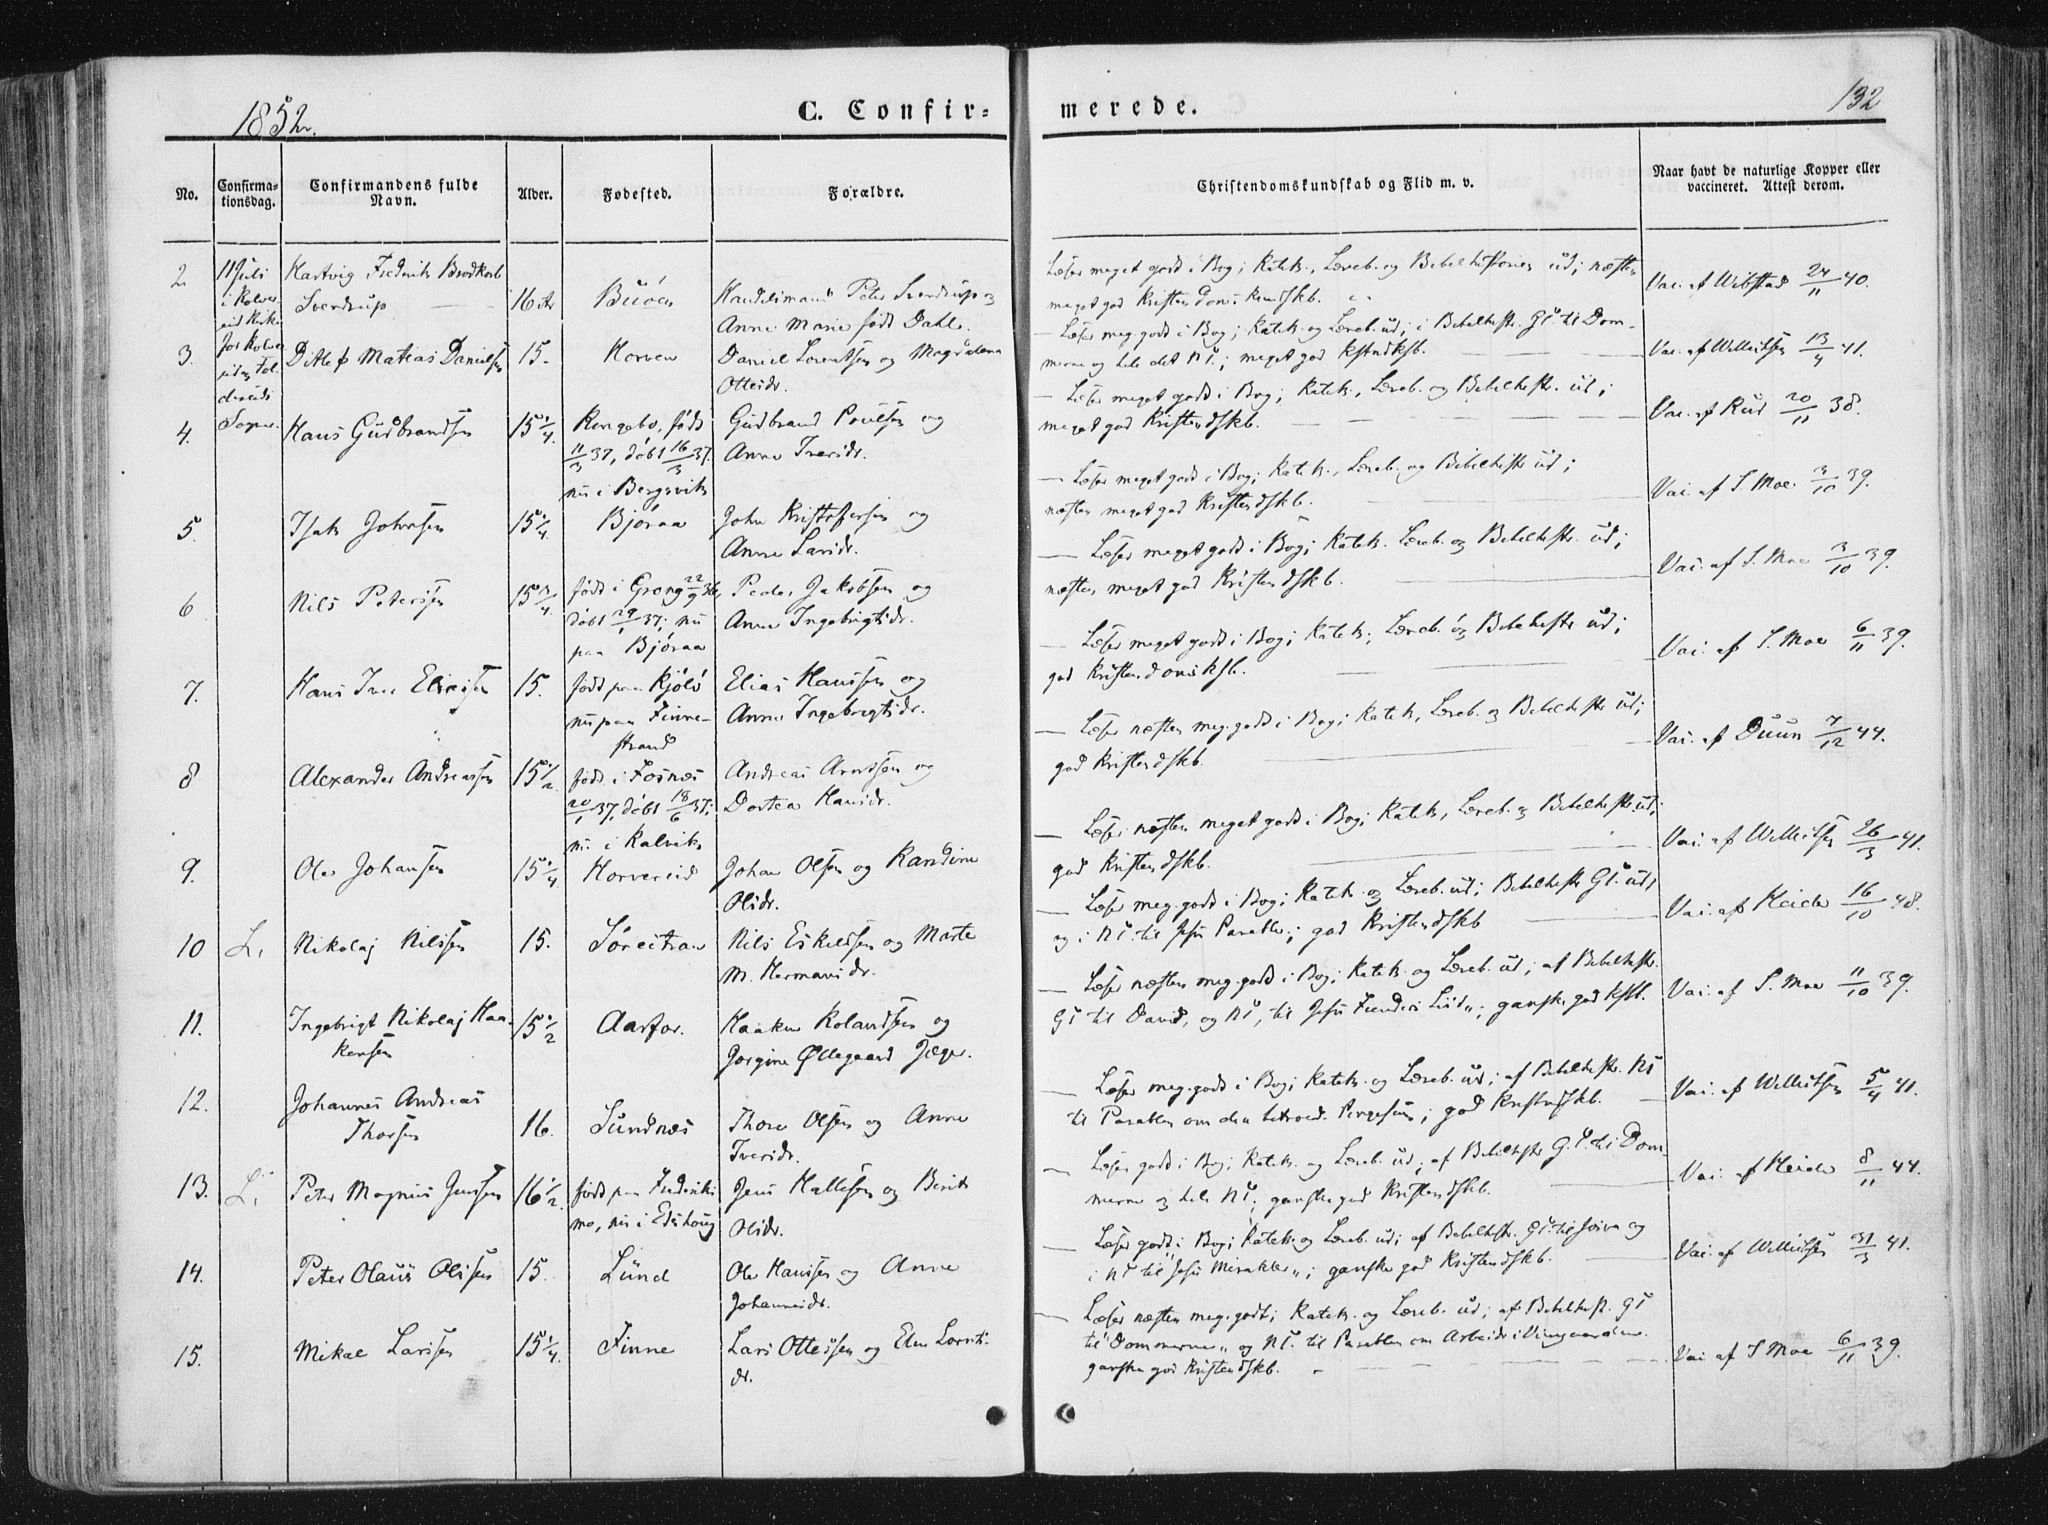 1852.
C. Confir=
merede.
132
No.
Confirma-
tionsdag.
Confirmandens fulde
Navn.
Alder.
Fødested.
Forældre.
Christendomskundskab og Flid m. v.
Naar havt de naturlige Kopper eller
vaccineret. Attest derom.
2 11 Juli Hartvig Frederik Brodkorb
Sverdrup 16 Ar Buøen Handelsmand Peter Sverdrup og
Anne Marie født Dahl.
Læser meget godt i Bog; Katek., Læreb. og Bibelhistorien ud; næsten
meget god Kristendomskundskb.
Vac. af Wibstad 24/11 40.
3. Ditlef Matias Danielsen 15. Horven Daniel Lorentsen og Magdalena
Ottesdr.
Læser meg. godt i Bog; Katek. og Læreb. ud; i Bibelhistr. GT til Dom-
merne og hele det NT; meget god
Vac. af Willutsen 13/4 41.
4. Hans Gudbrandsen 15 1/4. Ringebo, født
11/3 37, døbt 16/3 37.
nu i Bergsvik
Gudbrand Poulsen og
Anne Iversdr.
Læser meget godt i Bog; Katek., Læreb. og Bibelhistr. ud;
meget god Kristendskb.
Vac. af Rud 20/11 38.
5. Isak Johnsen 15 1/4. Bjøraa John Kristofersen og
Anne Larsdr.
Læser meget godt i Bog; Katek., Læreb. og Bibelhistr ud;
næsten meget god Kristendskb.
Vac. af S. Moe. 3/10 39.
6 Nils Petersen 15 3/4. født i Grong 22/9 36,
døbt 29/1 37; nu
paa Bjøraa
Peder Jakobsen og
Anne Ingebrigtsdr.
Læser meget godt i Bog; Katek. Læreb. og Bibelhistr. ud;
næsten meget god Kristendskb.
Vac. af S. Moe 3/10 39.
7. Hans Iver Eliasen 15. født paa Kjølø
nu paa Finne-
strand
Elias Hanssen og
Anne Ingebrigtsdr.
Læser meget godt i Bog; Katek., Læreb. og Bibelhistr ud;
god Kristendomsksb.
Vac. af S. Moe 6/11 39.
8 Alexander Andreassen 15 1/2 født i Fosnæs
20/1 37, døbt 18/6 37;
nu i Kalvik
Andreas Arntsen og
Dortea Hansdr.
Læser næsten meg. godt i Bog; Katek, Læreb. og Bibelhistr ud;
god Kristendskb.
Vac. af Duun 7/12 44.
9. Ole Johansen 15 1/4. Horvereid Johan Olsen og Randine
Olsdr.
Læser næsten meget godt i Bog; Katek, Læreb. og Bibelhistr. ud;
god Kristendskb.
Vac. af Willutsen 26/3 41.
10 L. Nikolaj Nilsen 15. Nils Eskildsen og Marte
M. Hermansdr.
Læser meg. godt i Bog; Katek. og Læreb. ud; Bibelhistr GT. ud;
og i NT. til Jesu Parabler; god Kristendskb
Vac. af Heide 16/10 48.
11. Ingebrigt Nikolaj Haa-
kensen 15 1/2 Aarfor. Haaken Rolandsen og
Jørgine Øllegaard Jæger.
Læser næsten meg. godt i Bog; Katek. og Læreb. ud; af Bibelhistr.
GT til David, og NT, til Jesu Fienders List"; ganske god
Vac. af S. Moe 11/10 39.
12. Johannes Andreas
Thorsen 16. Sundnæs Thore Olsen og Anne
Iversdr.
Læser meg. godt i Bog; Katek. og Læreb. ud; af Bibelhistr. NT
til Parablen om den god Kristendskb.
Vac. af Willutsen 5/4 41.
13. L. Peter Magnus Jensen 16 1/2. født paa Frederiks
mo, nu i Edshoug
Jens Hallesen og Berit
Olsdr.
Læser godt i Bog; Katek. og Læreb. ud; af Bibelhistr G.T. til Dom
merne og hele NT.; ganske god Kristendskb.
Vac. af Heide 8/11 44.
14. Peter Olaus Olsen 15. Lund Ole Hansen og Anne
Johannesdr.
Læser godt i Bog; Katek. og Læreb. ud; af Bibelhistr. GT. til Josva og
i NT til "Jesu Mirakler"; ganske god Kristendskb.
Vac. af Willutsen 31/3 41.
15. Mikal Larsen 15 1/4. Finne Lars Ottessen og Elen Lornts
dr.
Læser næsten meg. godt; Katek. og Læreb. ud; af Bibelhist. GT
til "Dommerne" og NT. til Parablen om Arbeidr. i Viingaarden.
ganske god Kristendskb.
Vac. af S Moe 6/11 39.